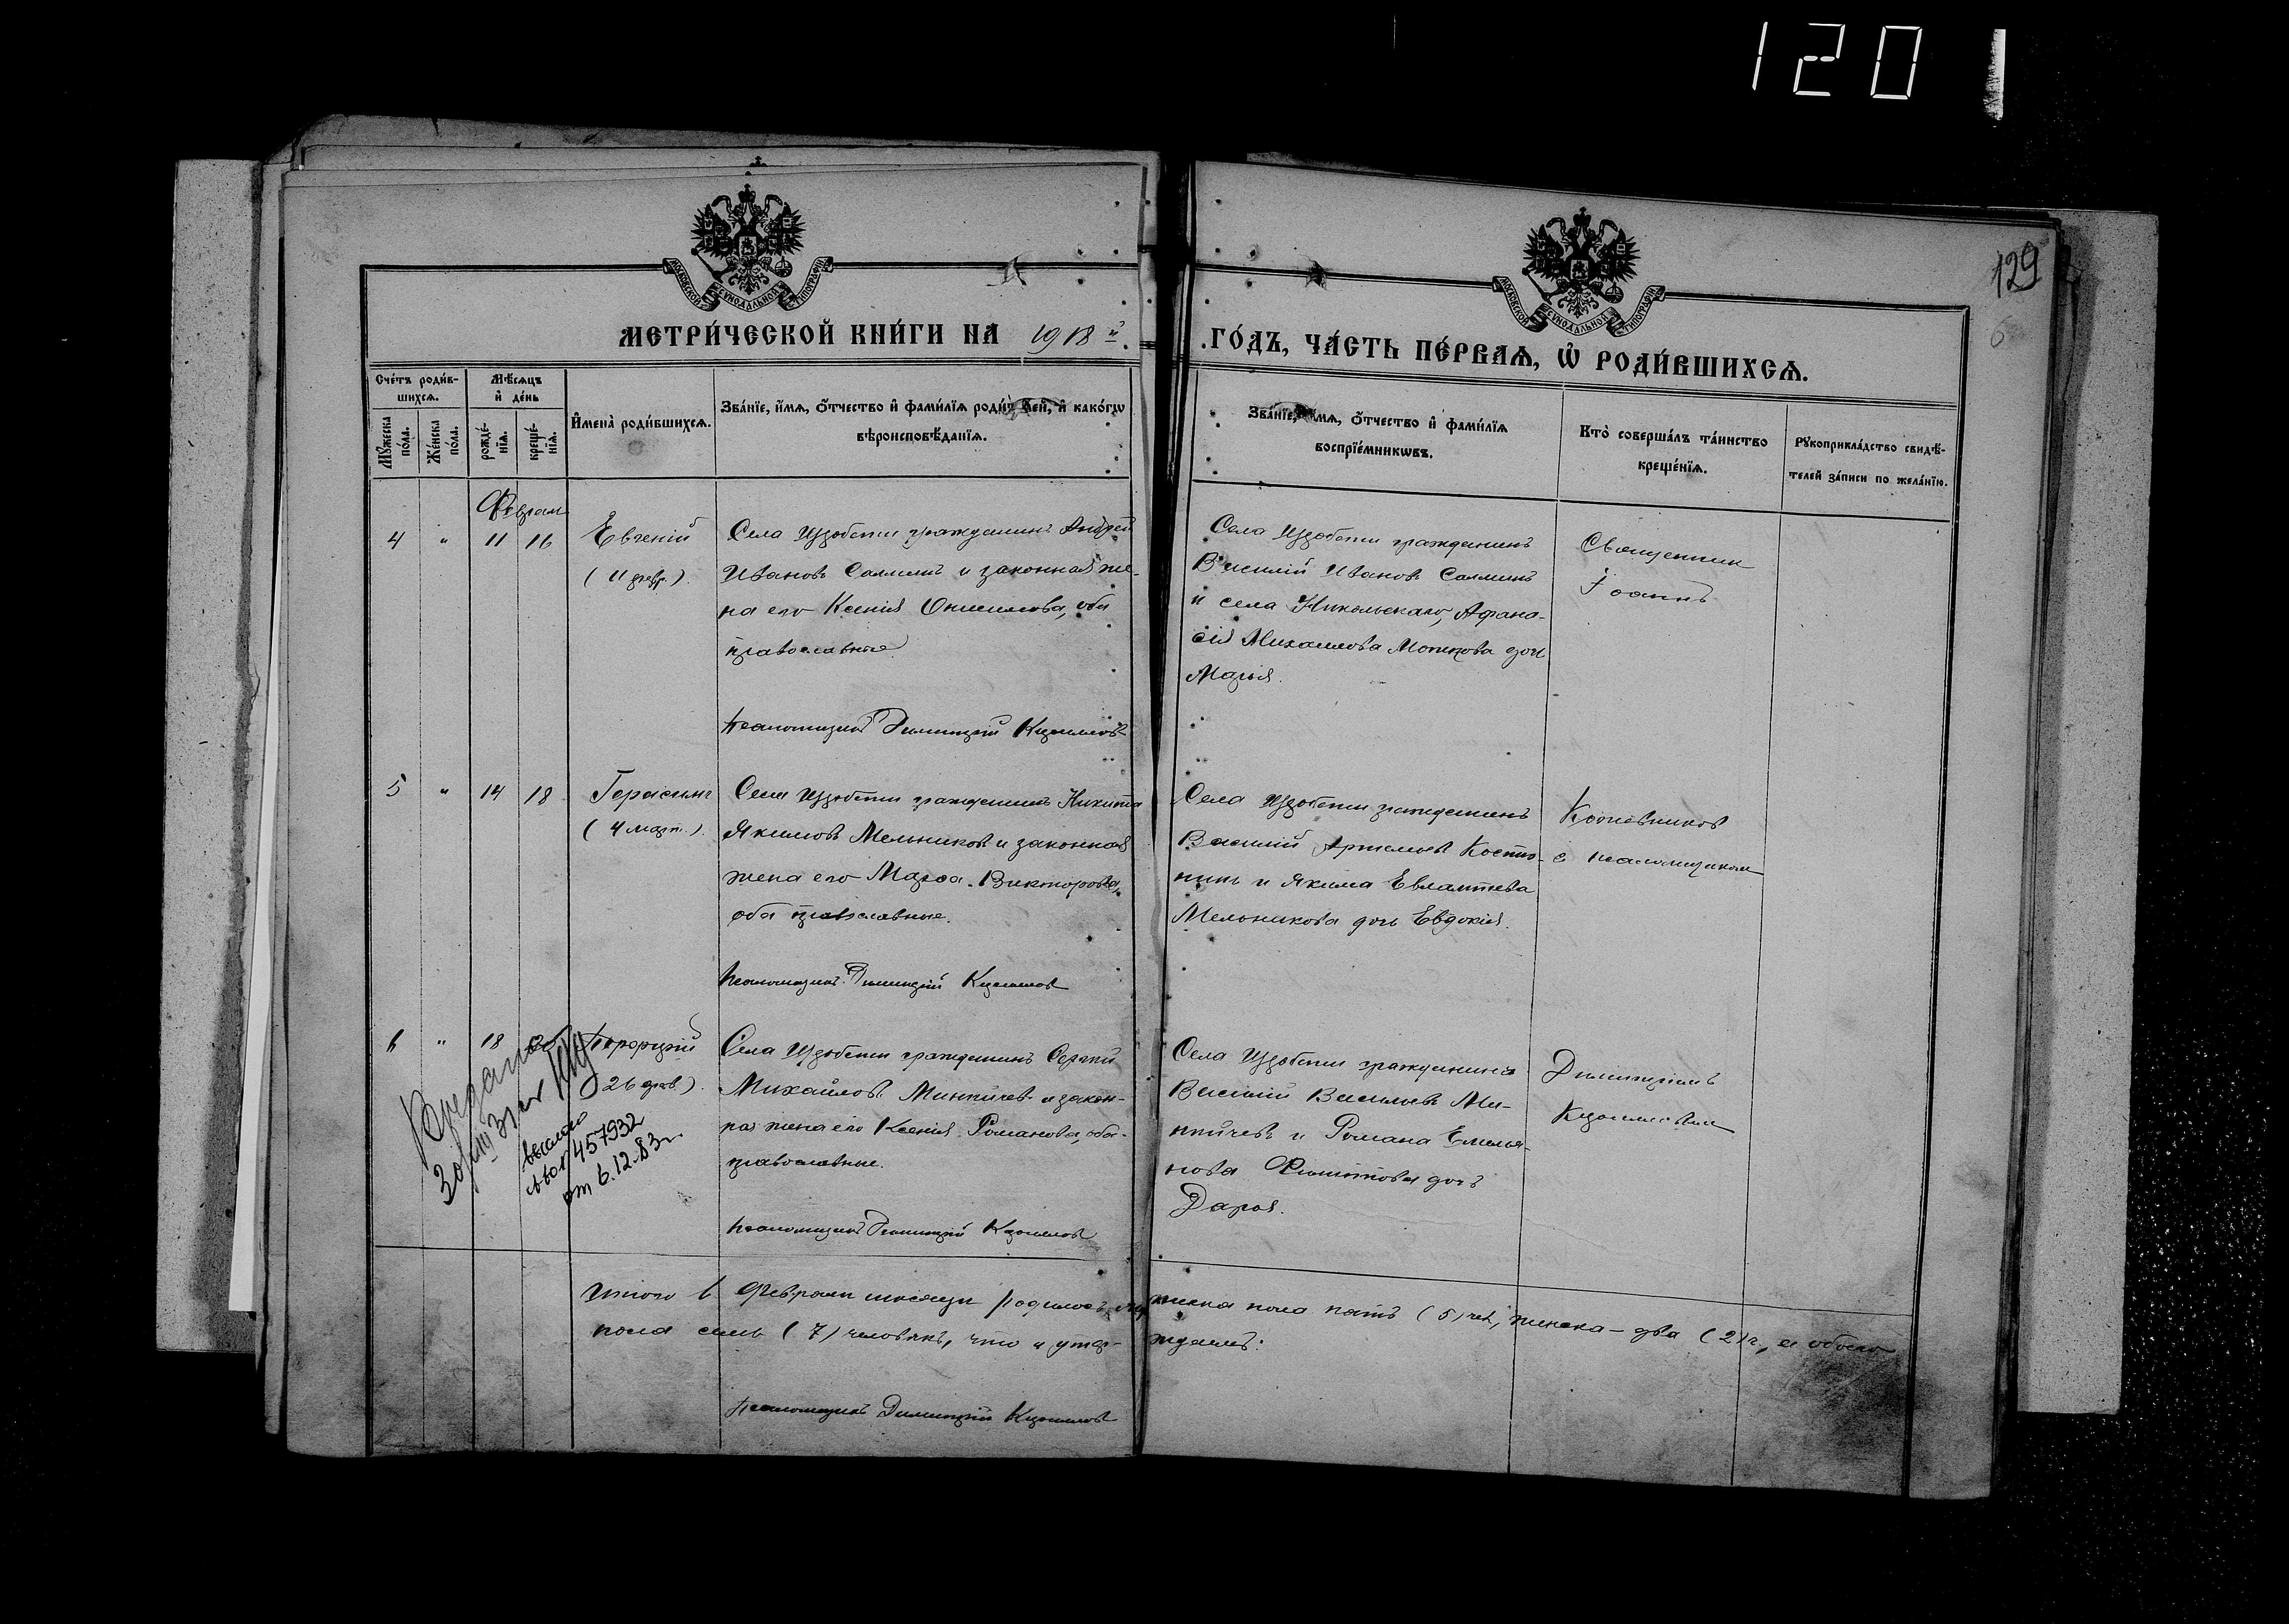 1201
129
6
МОСКОВСКОЙ СѴНОДАЛЬНОЙ ТИПОГРАФІИ
МОСКОВСКОЙ СѴНОДАЛЬНОЙ ТИПОГРАФІИ
МЕТРИ́ЧЕСКОЙ КНИ́ГИ НА 1918 й
ГО́ДЪ, ЧА́СТЬ ПЕ́РВАѦ, Ѡ҆ РОДИ́ВШИХСѦ.
Сче́тъ роди́в-
шихсѧ.
Мѣ́сѧцъ
и҆ де́нь
Мꙋ́жеска
по́ла.
Же́нска
по́ла.
рожде́-
нїѧ.
креще́-
нїѧ.
И҆мена̀ роди́вшихсѧ.
Зва́нїе, и҆́мѧ, ѻ҆́тчество и҆ фами́лїѧ роди́телей, и҆ како́гѡ
вѣроисповѣ́данїѧ.
Зва́нїе, и҆́мѧ, ѻ҆́тчество и҆ фами́лїѧ
воспрїе́мникѡвъ.
Кто̀ соверша́лъ та́инство
креще́нїѧ.
Рꙋкоприкла́дство свидѣ́-
телей за́писи по жела́нїю.
Феврал
4 " 11 16 Евгеній
(11 февр.).
Села Изобстн гражданинъ Андрей
Ивановъ Салминъ и законная же-
на его Ксенія Онисимова, оба
православные
Псаломщикъ Димитрій Кирилловъ
Села Изобстн гражданинъ
Василій Ивановъ Салминъ
и села Никольскаго, Афана-
сія Михаилова дочь
Марія.
Священник
Іоаннъ
5 " 14 18 Герасимъ
(4 март.).
Села Изобстн гражданинъ Никита
Якимовъ Мельниковъ и законная
жена его Марѳа Викторова,
оба православные.
Псаломщикъ Димитрій Кириллов
Села Изобстн гражданинъ
Василій Артемьевъ Костю-
нинъ и Якима Евлампіева
Мельникова дочь Евдокія.
Кожевников
с псаломщиком
6 " 18 20 Порфирій
(26 фев.).
Села Изобстн гражданинъ Сергій
Михайловъ Минничев и закон-
ная жена его Ксенія Романова, оба
православные.
Псаломщикъ Димитрій Кириллов
Села Изобстн гражданинъ
Василій Васильевъ Ми-
нничевъ и Романа Емелья-
нова Филиппова дочь
Дарья.
Димитріемъ
Кирилловым
выслано
св-во 457932
от 6.12.83 г.
Итого в Феврале месяце родилось мужеска пола пять (5) чел, женска – два (2) ч., а обоего
пола семь (7) человѣкъ, что и утвер-
ждаемъ:
Псаломщикъ Димитрій Кириллов